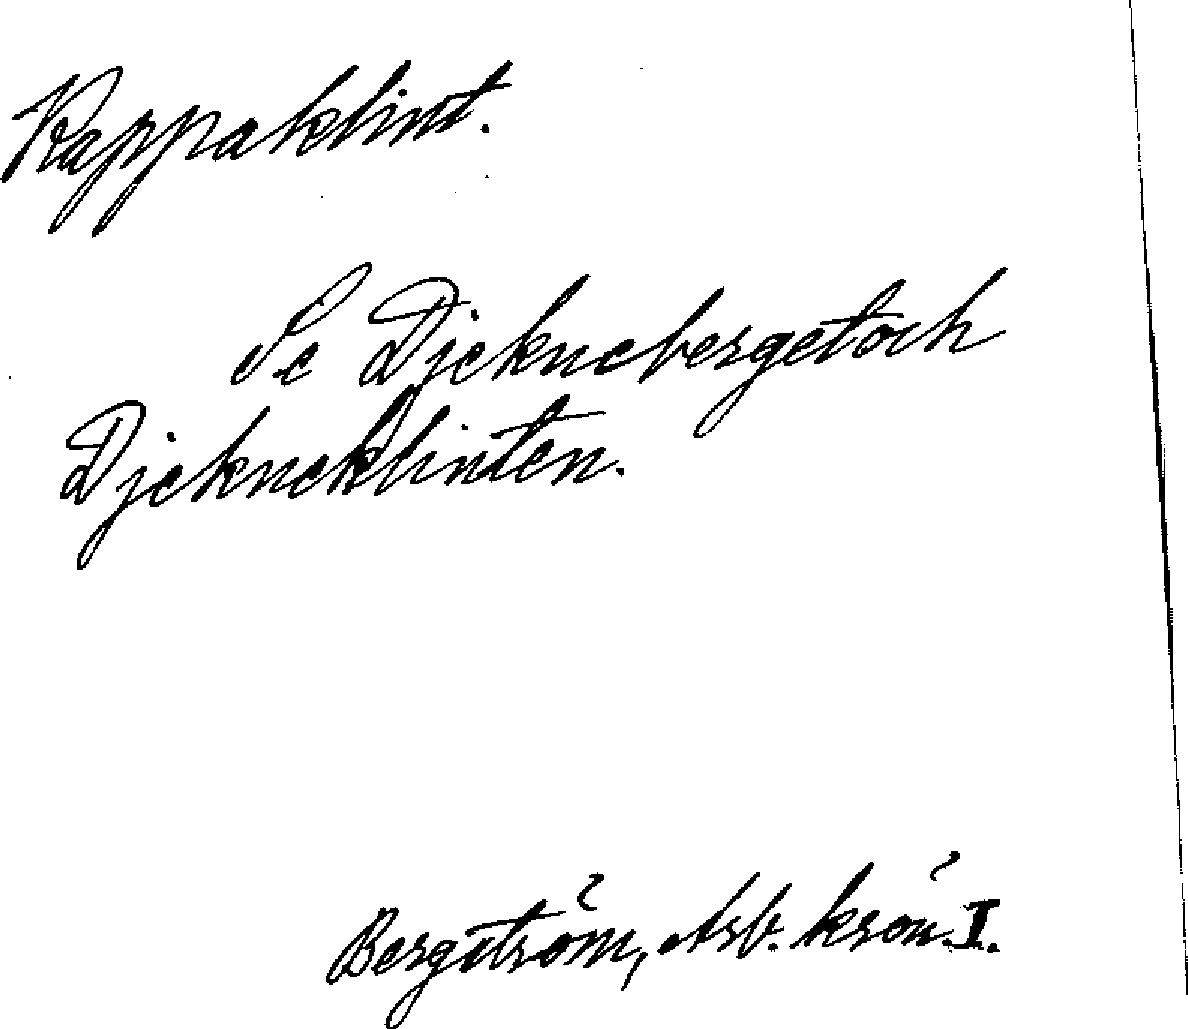 Kappaklint.
Se Djeknebergetoch
Djekneklinten.
Bergström, Arb. krön. I.